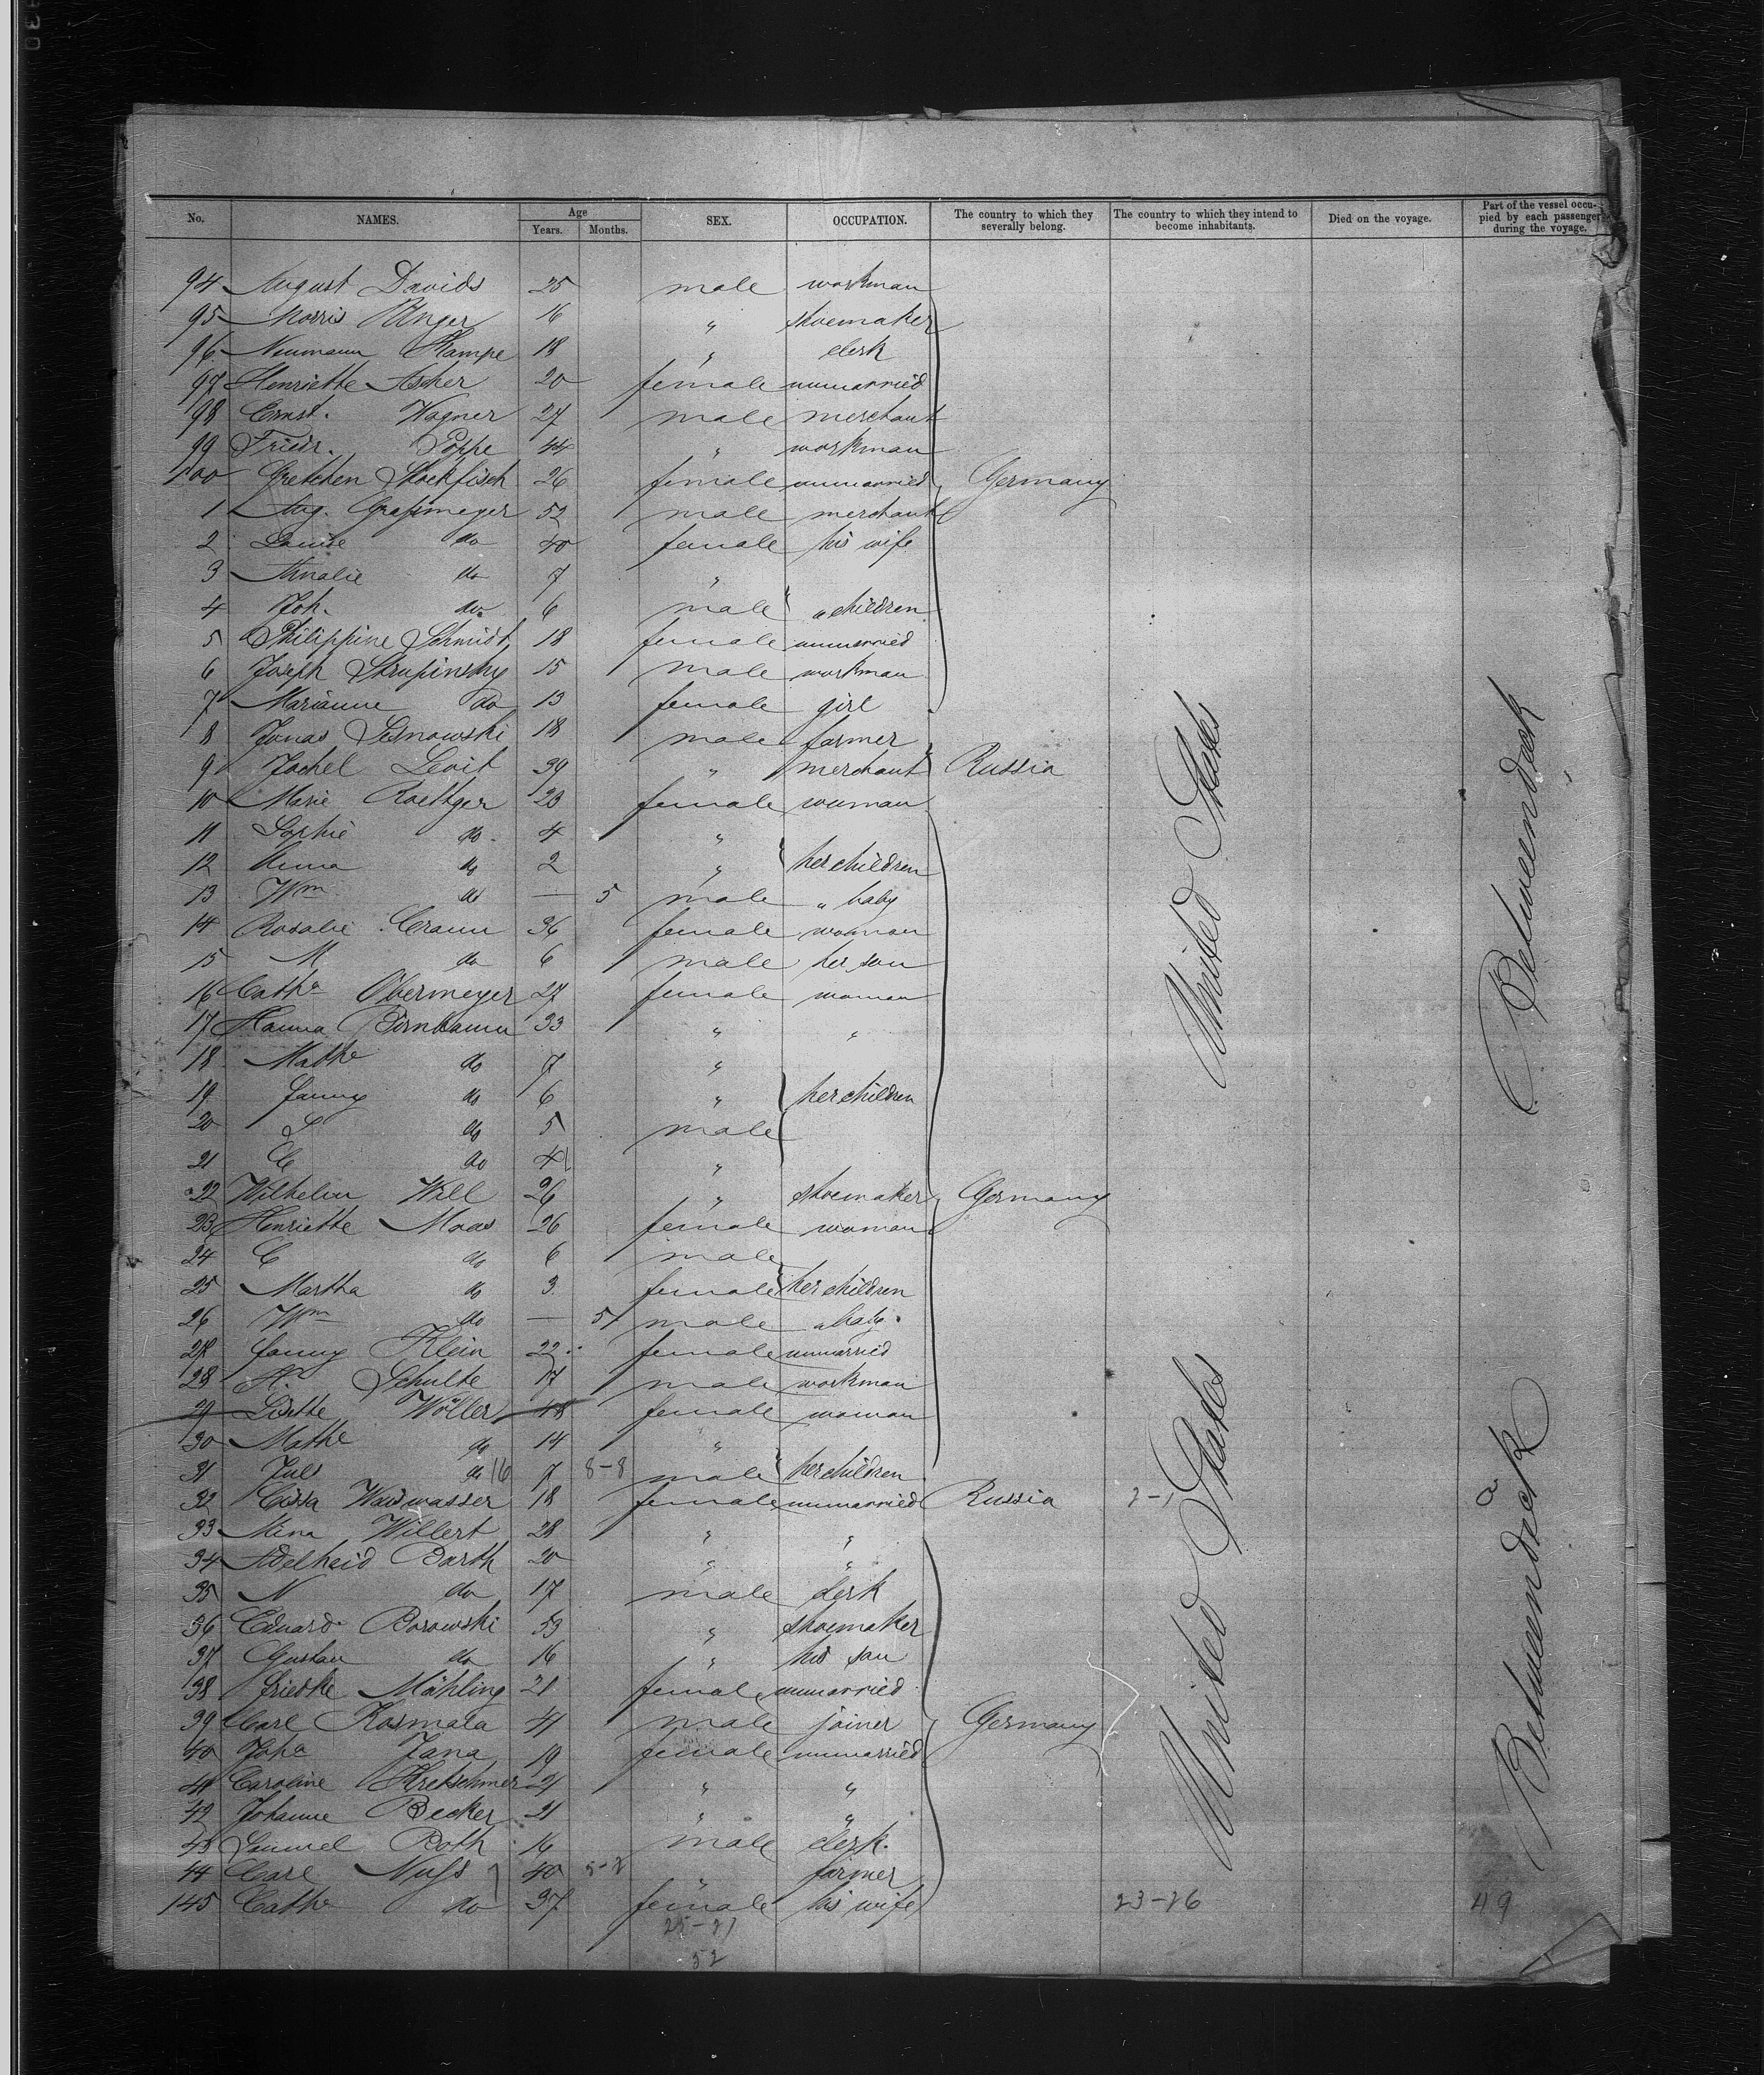 No. NAMES. Age Years. Months. SEX. OCCUPATION. The country to which they severally belong. The country to which they intend to become inhabitants. Died on the voyage. Part of the vessel occupied by each passenger during the voyage.
94 August Davids 25 male workman
95 Morris Unger 16 " shoemaker
96 Neumann Kampe 18 " clerk
97 Henriette Ascher 20 female unmarried
98 Ernst Wagner 27 male merchant
99 Friedr. Poppe 44 " workman
100 Gretchen Stockfisch 26 female unmarried Germany
1 Aug. Grassmeyer 52 male merchant
2 Louise do 40 female his wife
3 Amalie do 7 "
4 Joh. do 6 male " children
5 Philippine Schmidt 18 female unmarried
6 Joseph Strupinsky 15 male workman
7 Marianne do 13 female girl
8 Jonas Lesnowski 18 male farmer
9 Jachel Levit 39 " merchant Russia
10 Marie Roettger 23 female woman
11 Sophie do 4 "
12 Anna do 2 " her children
13 Wm do — 5 male " baby
14 Rosalie Cramm 36 female woman
15 M do 6 male her son
16 Catha Obermeyer 27 female woman
17 Hanna Birnbaum 33 " "
18 Mathe do 7 "
19 Fanny do 6 " her children
20 L do 5 male
21 C do 4 "
22 Wilhelm Will 26 " shoemaker Germany
23 Henriette Maas 26 female woman
24 C do 6 male
25 Martha do 3 female her children
26 Wm do — 5 male " baby
27 Fanny Klein 22 female unmarried
28 H. Schulte 17 male workman
29 Lisette Wöller 48 female woman
30 Mathe do 14 "
31 Juls do 16 7 8-8 male her children
32 Cissa Waiswasser 18 female unmarried Russia 2-1
33 Mina Willert 28 " "
34 Adelheid Barth 20 " "
35 N do 17 male clerk
36 Eduard Borowski 53 " shoemaker
37 Gustav do 16 " his son
38 Friedke Mähling 21 female unmarried
39 Carl Kosmala 41 male joiner Germany
40 Joha Jana 19 female unmarried
41 Caroline Kretschmer 21 " "
42 Johanne Becker 21 " "
43 Samuel Roth 16 male clerk
44 Carl Nuss 40 " farmer
145 Cathe do 37 female his wife 23-26 49
52
United States
United States
Betweendeck
Betweendeck